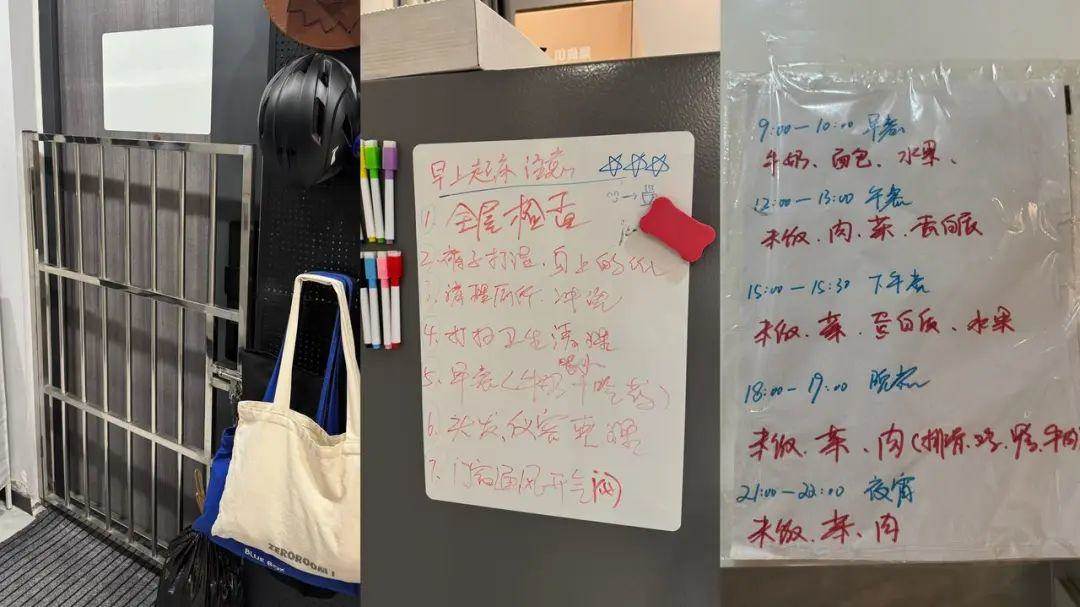 ZEROROOM
BLUE
早上起来注意
1. 全屋检查
2. 打湿、身上的
3. 清理厕所、冲洗
4. 打扫卫生清理
5. 早餐(牛奶 吃药)
6. 头发、仪容整理
7. 门窗通风开气阀
9:00—10:00 早餐
牛奶、面包、水果、
12:00—13:00 午餐
米饭、肉、菜、蛋白质
15:00—15:30 下午餐
米饭、菜、蛋白质、水果
18:00—19:00 晚餐
米饭、菜、肉(排骨、鸡、鸭、牛肉
21:00—22:00 夜宵
米饭、菜、肉